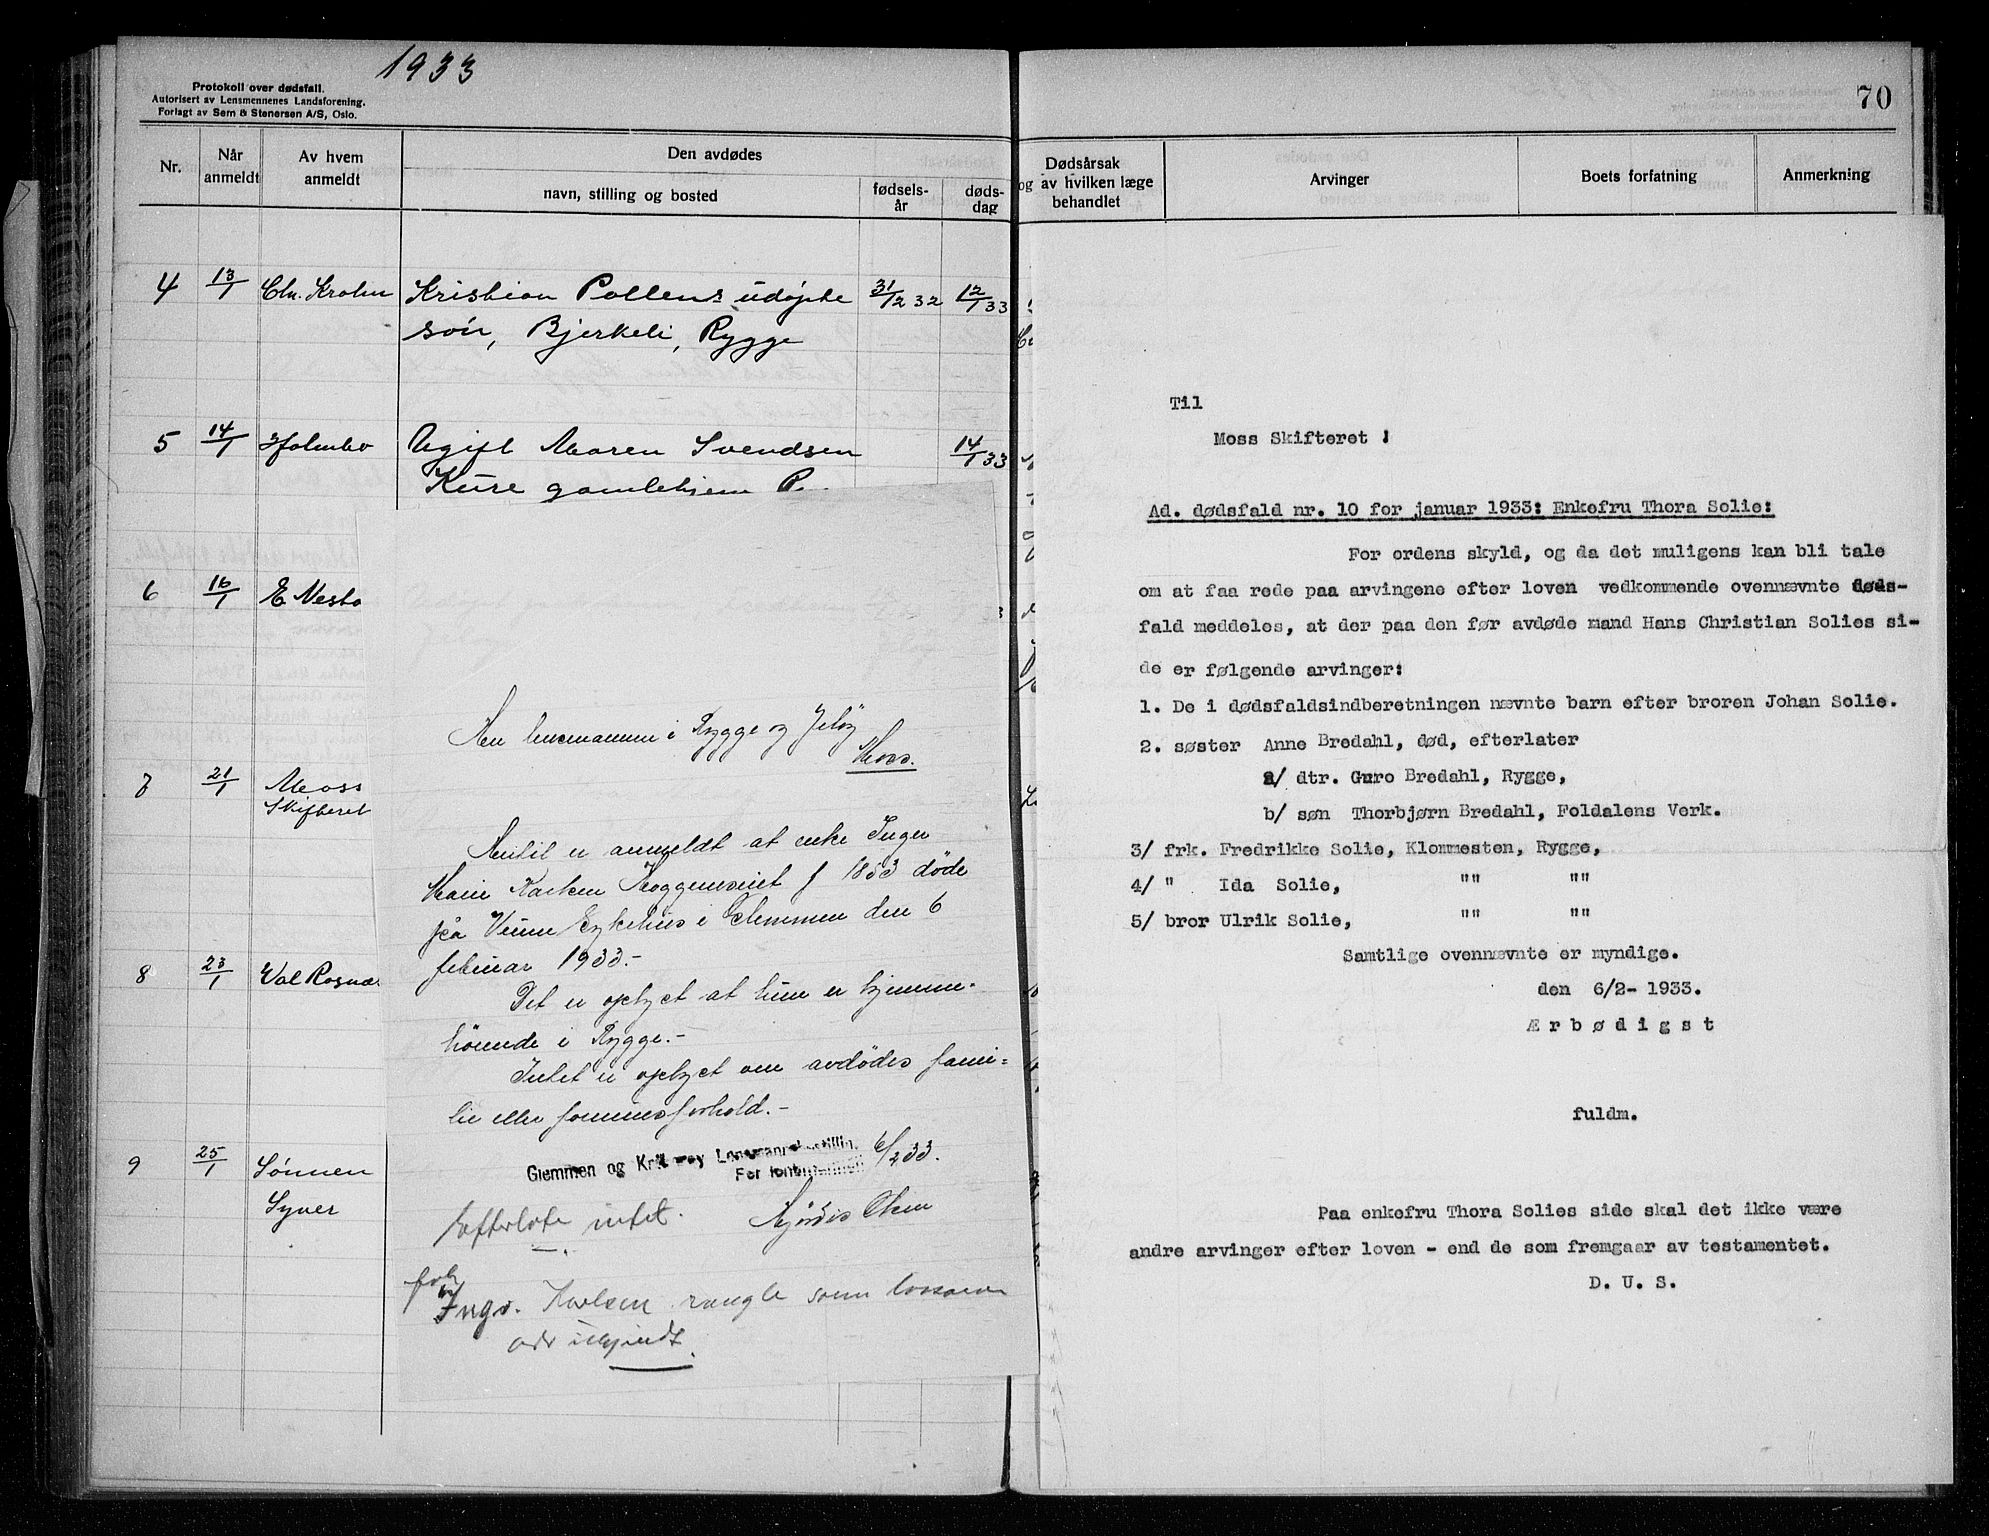 1933
Protokoll over dødsfall.
Autorisert av Lensmennenes Landsforening.
Forlagt av Sem & Stenersen A/S, Oslo.
Nr.
Når anmeldt
Av hvem anmeldt
Den avdødes
navn, stilling og bosted
fødsels-år
døds-dag
4 13/1 Chr. Krohn Kristian Pollens udøpte 31/12 32 12/1 33
søn, Bjerkeli, Rygge
5 14/1 Holmbo Ugift Maren Svendsen 14/1 33
Kure gamlehjem R.
6 16/1 E Nesbo
7 21/1 Moss
Skifteret
8 23/1 Val Rosnæs
9 25/1 Sønnen
Syver
Herr lensmannen i Rygge og Jeløy
Moss.
Hertil er anmeldt at enke Inger
Marie Karlsen f 1853 døde
på Veum Sykehus i Glemmen den 6
februar 1933.-
Det er oplyst at hun er hjemme-
hörende i Rygge.-
Intet er oplyst om avdödes fami-
lie eller formuesforhold.-
Glemmen og Kråkerøy Lensmannsbestilling 6/2 33.
For lensmannen
Hjördis Olsen
Efterlate intet.
Ingv. Karlsen
70
Dødsårsak
og av hvilken læge
behandlet
Arvinger
Boets forfatning
Anmerkning
Til
Moss Skifteret !
Ad. dødsfald nr. 10 for januar 1933: Enkefru Thora Solie:
For ordens skyld, og da det muligens kan bli tale
om at faa rede paa arvingene efter loven vedkommende ovennævnte døds-
fald meddeles, at der paa den før avdøde mand Hans Christian Solies si-
de er følgende arvinger:
1. De i dødsfaldsindberetningen nævnte barn efter broren Johan Solie.
2. søster Anne Bredahl, død, efterlater
a/ dtr. Guro Bredahl, Rygge,
b/ søn Thorbjørn Bredahl, Foldalens Verk.
3/ frk. Fredrikke Solie, Klommesten, Rygge,
4/ " Ida Solie, "" ""
5/ bror Ulrik Solie, "" ""
Samtlige ovennævnte er myndige.
den 6/2- 1933.
Ærbødigst
fuldm.
Paa enkefru Thora Solies side skal det ikke være
andre arvinger efter loven - end de som fremgaar av testamentet.
D. U. S.